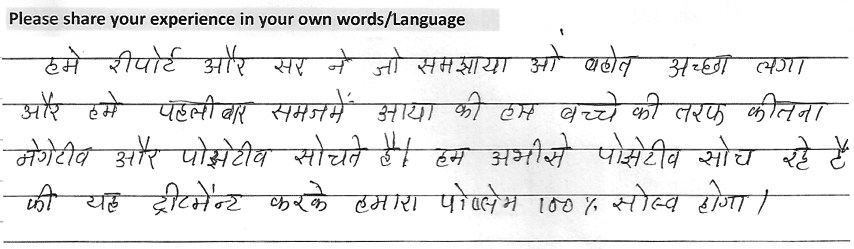 Please share your experience in your own words/Language
हमे रीपोर्ट और सर ने जो समझाया ओ बहोत अच्छा लगा।
और हमे पहलीबार समजमें आया की हम बच्चे की तरफ कीतना
नेगेटीव और पोझेटीव सोचते है। हम अभीसे पोझेटीव सोच रहे है
की यह ट्रीटमेंन्ट करके हमारा पोब्लेम 100% सोल्व होगा।